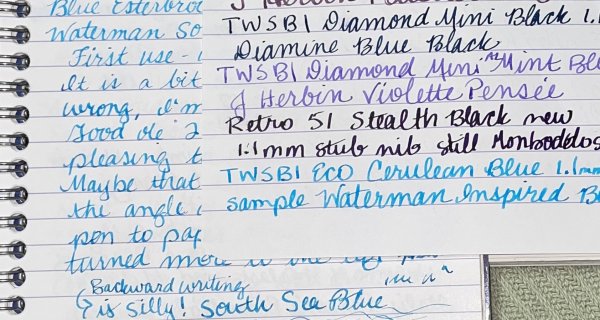 Blue Esterbroo
Waterman So
First use -
It is a bit
wrong, I'm
Good ole
pleasing t
Maybe that
the angle
pen to pap
turned more
Backward writing
is silly! South Sea Blue
J Herbin
TWSBI Diamond Mini Black 1.1
Diamine Blue Black
TWSBI Diamond Mini Mint Blu
J Herbin Violette Pensée
Retro 51 Stealth Black new
1.1mm stub nib still Monboddos
TWSBI ECO Cerulean Blue 1.1mm
sample Waterman Inspired B